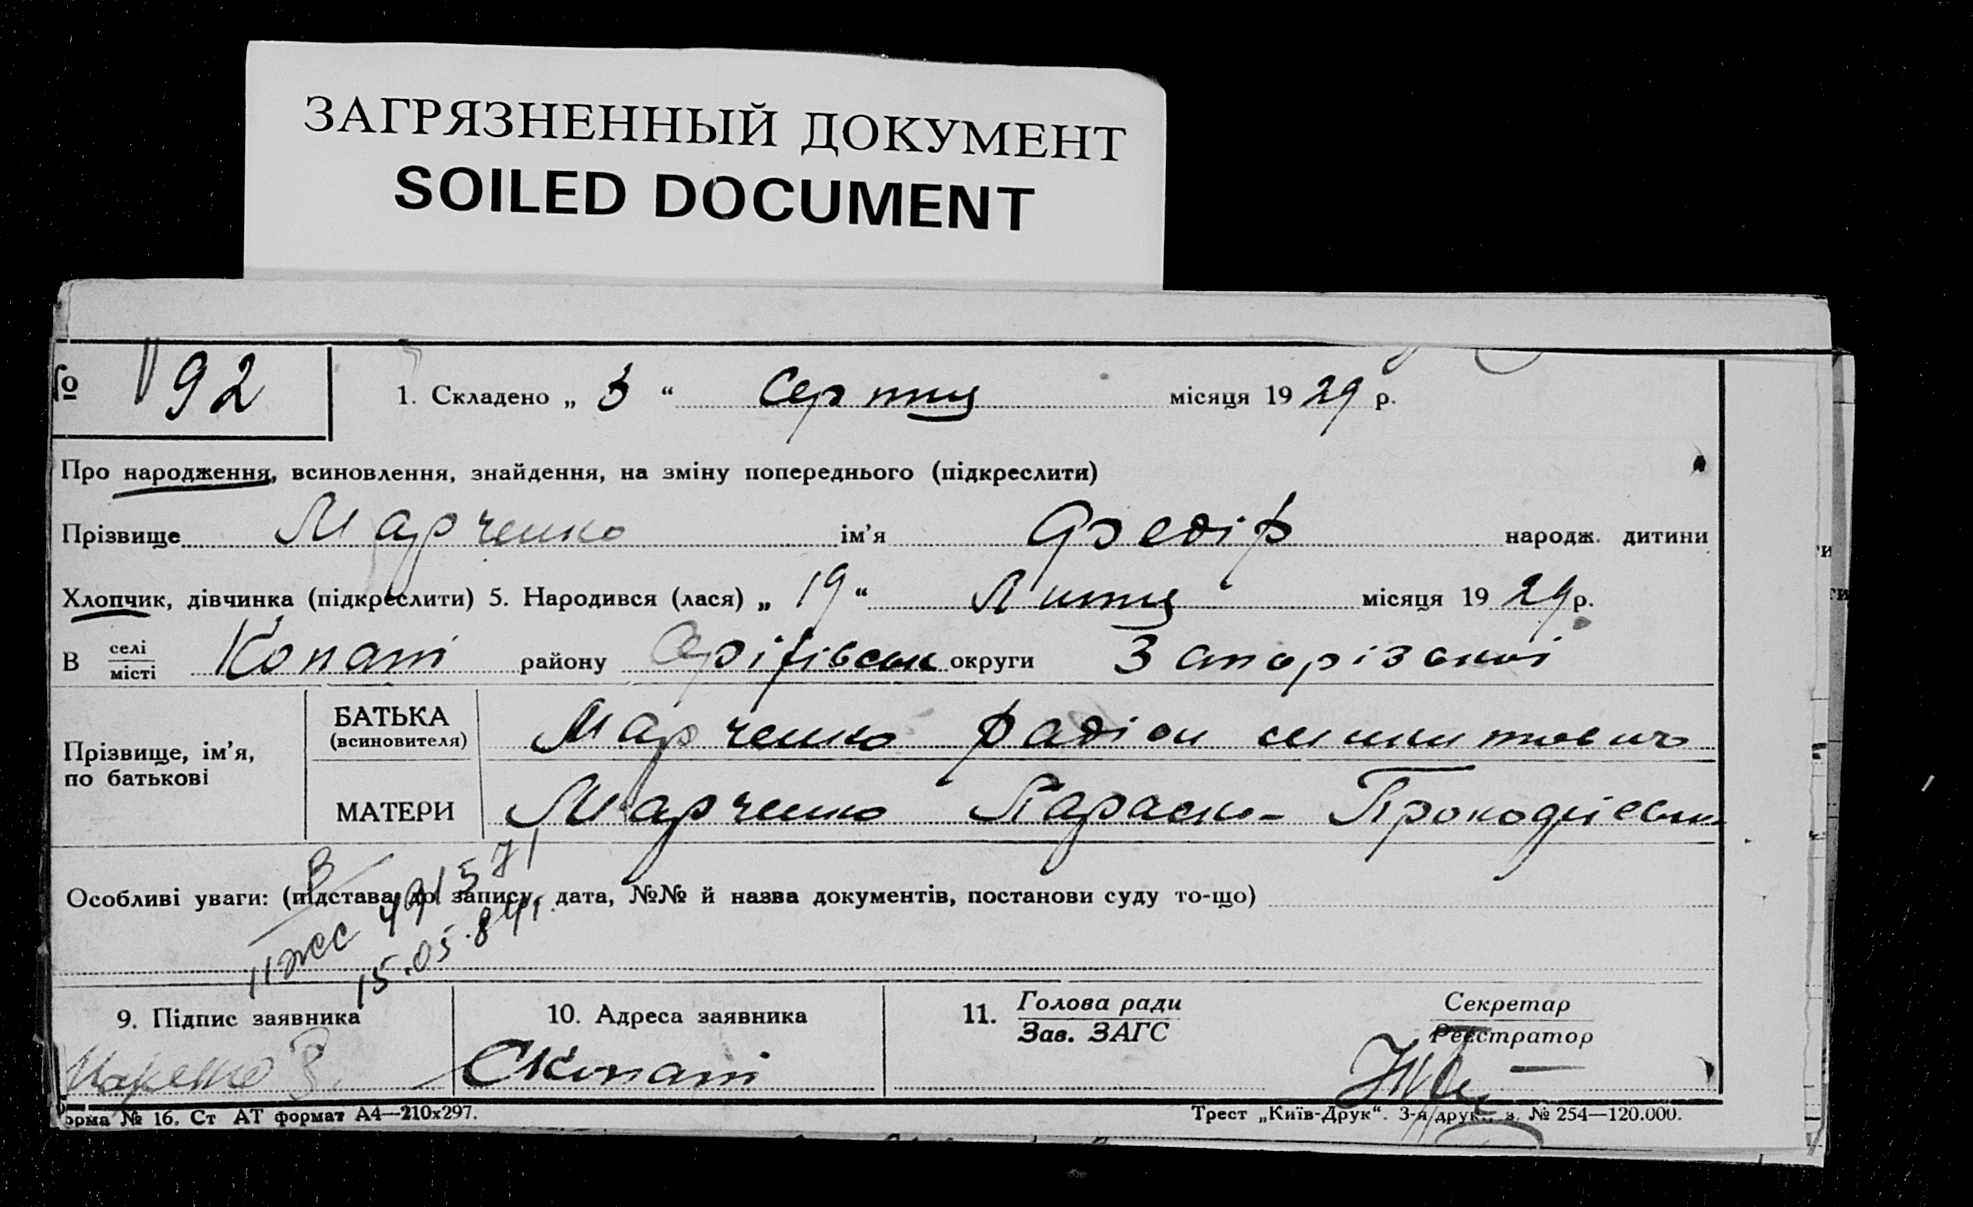 ЗАГРЯЗНЕННЫЙ ДОКУМЕНТ
SOILED DOCUMENT
№ 92
1. Складено „ 3 “ Серпня місяця 1929 р.
Про народження, всиновлення, знайдення, на зміну попереднього (підкреслити)
Прізвище Марченко ім’я Федір народж. дитини
Хлопчик, дівчинка (підкреслити) 5. Народився (лася) „ 19 “ Липня місяця 1929 р.
В селі місті Копані району округи Запорізької
Прізвище, ім’я, по батькові
БАТЬКА (всиновителя) Марченко Радіон
МАТЕРИ Марченко Параска
Особливі уваги: (підстава до запису, дата, №№ й назва документів, постанови суду то-що)
15.05.84г.
9. Підпис заявника
10. Адреса заявника
11. Голова ради
Зав. ЗАГС
Секретар
Реєстратор
С Копані
орма № 16. Ст АТ формат А4—210х297.
Трест „Київ-Друк“. 3-я друк., з. № 254—120.000.